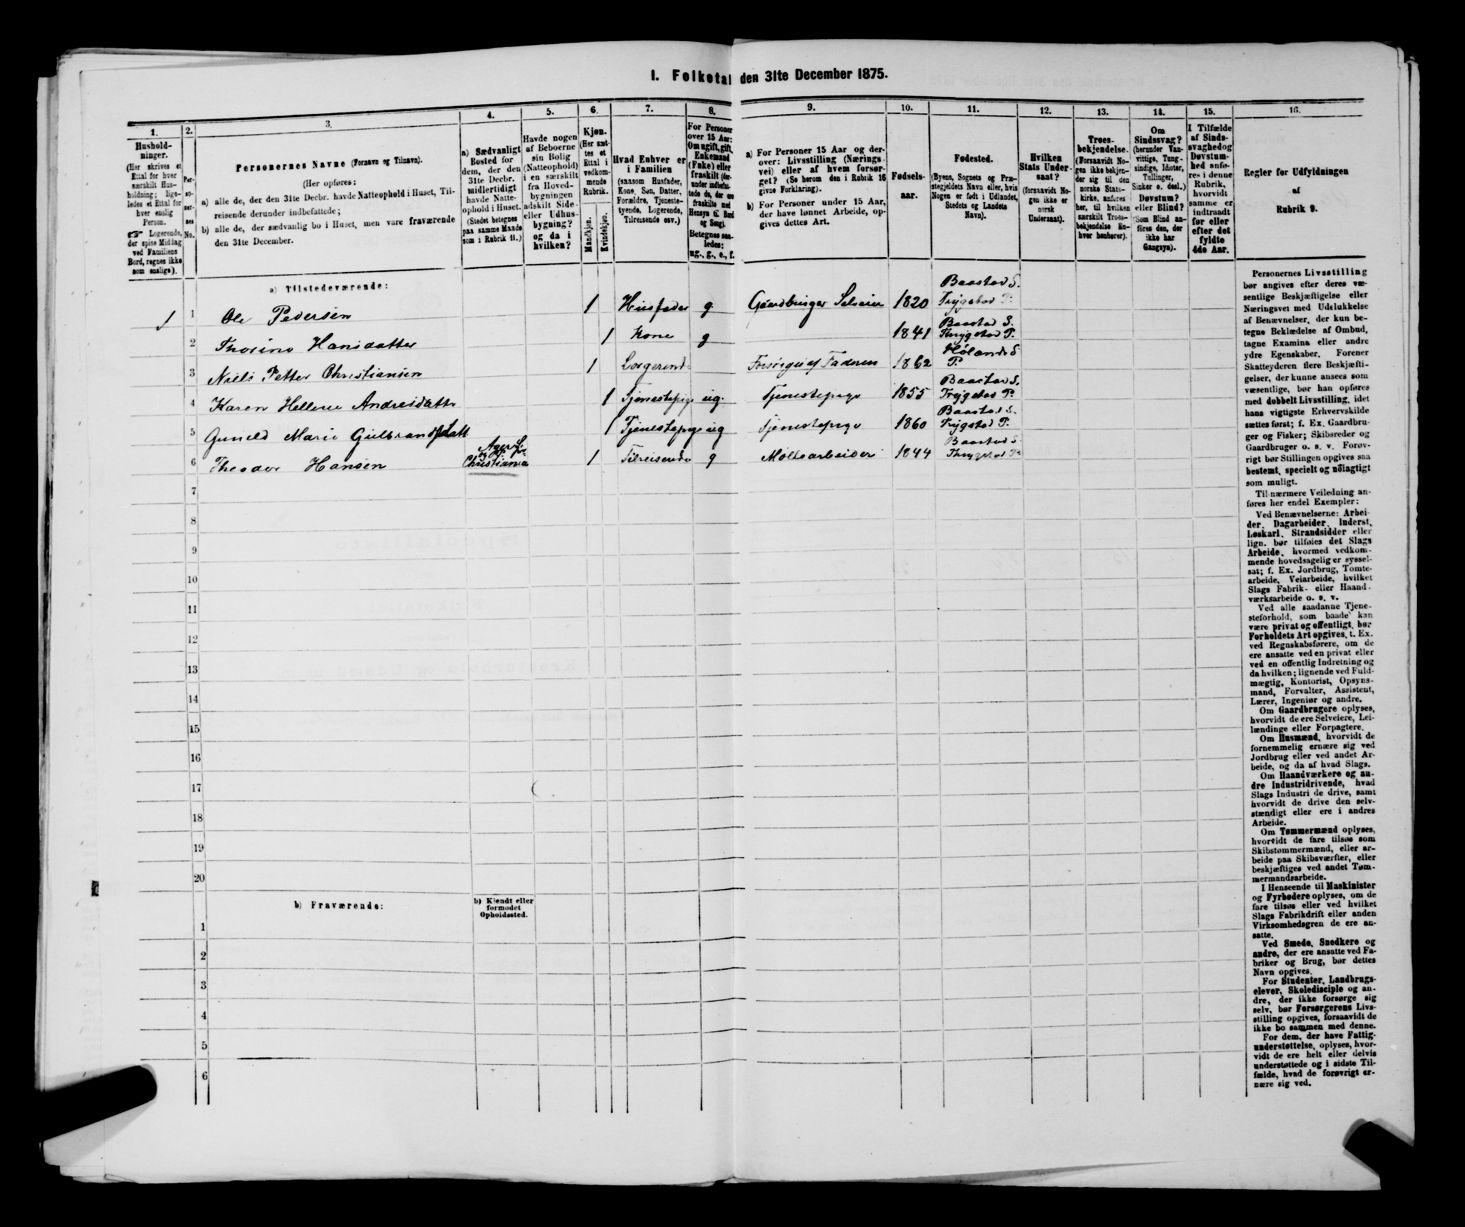 I. Folketal den 31te December 1875.
1.
2.
3.
4.
5.
6.
7.
8.
9.
10.
11.
12.
13.
14.
15.
16.
Hushold-
ninger.
(Her skrives et
Ettal for hver
særskilt Hus-
holdning; lige-
ledes et Ettal for
hver enslig
Person.
☞ Logerende,
der spise Middag
ved Familiens
Bord, regnes ikke
som enslige).
Per-
so-
ner-
nes
No.
Personernes Navne (Fornavn og Tilnavn).
(Her opføres:
a) alle de, der den 31te Decbr. havde Natteophold i Huset, Til-
reisende derunder indbefattede;
b) alle de, der sædvanlig bo i Huset, men vare fraværende
den 31te December.
a) Sædvanligt
Bosted for
dem, der den
31te Decbr.
midlertidigt
havde Natte-
ophold i Huset.
(Stedet betegnes
paa samme Maade
som i Rubrik 11.)
Havde nogen
af Beboerne
sin Bolig
(Natteophold)
i en særskilt
fra Hoved-
bygningen
adskilt Side-
eller Udhus-
bygning?
og da i
hvilken?
Kjøn.
(Her sæt-
tes et
Ettal i
vedkom-
mende
Rubrik.
Mandkjøn.
Kvindekjøn.
Hvad Enhver er
i Familien
(saasom Husfader,
Kone, Søn, Datter,
Forældre, Tjeneste-
tyende, Logerende,
Tilreisende osv.)
For Personer
over 15 Aar:
Om ugift, gift,
Enkemand
(Enke) eller
fraskilt (der-
under indbefat-
tede de, der ere
fraskilte med
Hensyn til Bord
og Seng).
Betegnes saa-
ledes:
ug., g., e., f.
a) For Personer 15 Aar og der-
over: Livsstilling (Nærings-
vei) eller af hvem forsør-
get? (Se herom den i Rubrik 16
givne Forklaring).
b) For Personer under 15 Aar,
der have lønnet Arbeide, op-
gives dettes Art.
Fødsels-
aar.
Fødested.
(Byens, Sognets og Præ-
stegjeldets Navn eller, hvis
Nogen er født i Udlandet,
Stedets og Landets
Navn).
Hvilken
Stats Under-
saat?
(forsaavidt No-
gen ikke er
norsk
Undersaat).
Troes-
bekjendelse.
(Forsaavidt No-
gen ikke bekjen-
der sig til den
norske Stats-
kirke, anføres
her, til hvilken
særskilt Troes-
bekjendelse En-
hver henhører).
Om
Sindssvag?
(herunder Van-
vittige, Tung-
sindige, Idioter,
Tullinger,
Sinker o. desl.)
Døvstum?
eller Blind?
(Som Blind an-
føres den, der
ikke har
Gangsyn).
I Tilfælde
af Sinds-
svaghed og
Døvstum-
hed anfø-
res i denne
Rubrik,
hvorvidt
samme er
indtraadt
før eller
efter det
fyldte
4de Aar.
Regler for Udfyldningen
af
Rubrik 9.
a) Tilstedeværende:
1 1 Ole Pedersen 1 Husfader g Gaardbruger Selveier 1820 Baastad S. Trygstad P.
2 Thorine Hansdatter 1 Kone g 1841 Baastad S. Thrygstad P.
3 Niels Petter Christiansen 1 Logerende Forsørges af Faderen 1862 Hølands S P.
4 Karen Hellene Andreidatter 1 Tjenestepige ug. Tjenestepige 1855 Baastad S. Trygstad P.
5 Gunild Marie Gulbrandsdatt 1 Tjenestepige ug Tjenestepige 1860 Baastad S. Trygstad P.
6 Theodor Hansen Christiania 1 Tilreisende g 1844 Baastad S Thrygstad P.
7
8
9
10
11
12
13
14
15
16
17
18
19
20
b) Fraværende:
b) Kjendt eller
formodet
Opholdssted.
1
2
3
4
5
6
Personernes Livsstilling
bør angives efter deres væ-
sentlige Beskjæftigelse eller
Næringsvei med Udelukkelse
af Benævnelser, der kun be-
tegne Beklædelse af Ombud,
tagne Examina eller andre
ydre Egenskaber. Forener
Skatteyderen flere Beskjæfti-
gelser, der kunne ansees som
væsentlige, bør han opføres
med dobbelt Livsstilling, idet
hans vigtigste Erhvervskilde
sættes først; f. Ex. Gaardbru-
ger og Fisker; Skibsreder og
Gaardbruger o. s. v. Forøv-
rigt bør Stillingen opgives saa
bestemt, specielt og nøiagtigt
som muligt.
Til nærmere Veiledning an-
føres her endel Exempler:
Ved Benævnelserne: Arbei-
der, Dagarbeider, Inderst,
Løskarl, Strandsidder eller
lign. bør tilføies det Slags
Arbeide, hvormed vedkom-
mende hovedsagelig er syssel-
sat; f. Ex. Jordbrug, Tomte-
arbeide, Veiarbeide, hvilket
Slags Fabrik- eller Haand-
værksarbeide o. s. v.
Ved alle saadanne Tjene-
steforhold, som baade kan
være privat og offentligt, bør
Forholdets Art opgives, t. Ex.
ved Regnskabsførere, om de
ere ansatte ved en privat eller
ved en offentlig Indretning og
da hvilken; lignende ved Fuld-
mægtig, Kontorist, Opsyns-
mand, Forvalter, Assistent,
Lærer, Ingeniør og andre.
Om Gaardbrugere oplyses,
hvorvidt de ere Selveiere, Lei-
lændinge eller Forpagtere.
Om Husmænd, hvorvidt de
fornemmelig ernære sig ved
Jordbrug eller ved andet Ar-
beide, og da af hvad Slags.
Om Haandværkere og an-
dre Industridrivende, hvad
Slags Industri de drive, samt
hvorvidt de drive den selv-
stændigt eller ere i andres
Arbeide.
Om Tømmermænd oplyses,
hvorvidt de fare tilsøs som
Skibstømmermænd, eller ar-
beide paa Skibsværfter, eller
beskjæftiges ved andet Tøm-
mermandsarbeide.
I Henseende til Maskinister
og Fyrbødere oplyses, om de
fare tilsøs eller ved hvilket
Slags Fabrikdrift eller anden
Virksomhedsgren de ere an-
satte.
Ved Smede, Snedkere og
andre, der ere ansatte ved Fa-
briker og Brug, bør dettes
Navn opgives.
For Studenter, Landbrugs-
elever, Skoledisciple og an-
dre, der ikke forsørge sig
selv, bør Forsørgerens Livs-
stilling opgives, forsaavidt de
ikke bo sammen med denne.
For dem, der have Fattig-
understøttelse, oplyses, hvor-
vidt de ere helt eller delvis
understøttede og i sidste Til-
fælde, hvad de forøvrigt er-
nære sig ved.